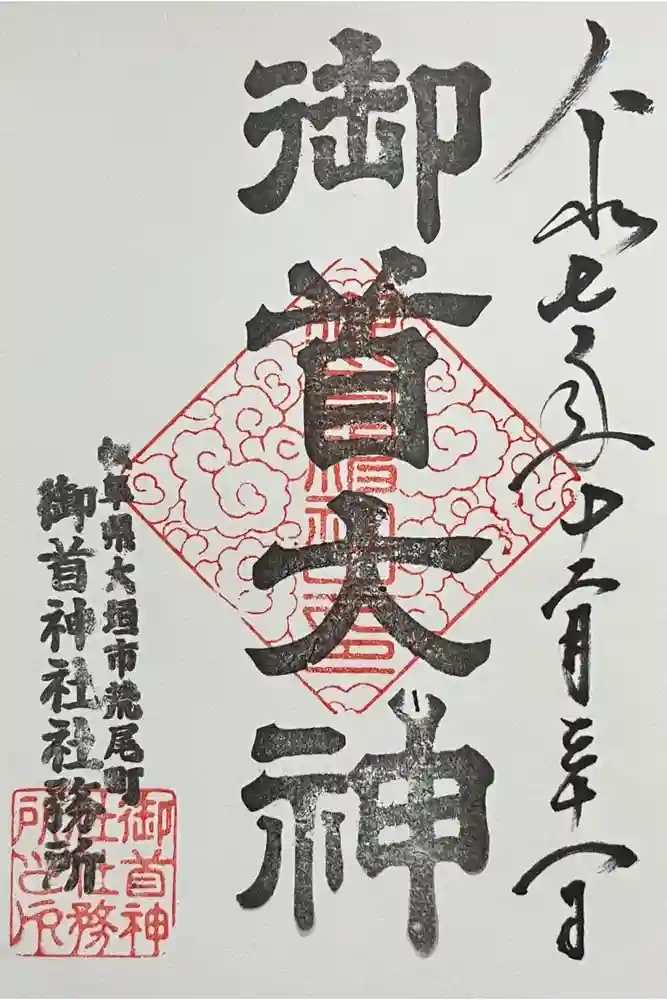 令和七年十二月
御首大神
岐阜県大垣市荒尾町
御首神社社務所
御首神
社社務
所之印